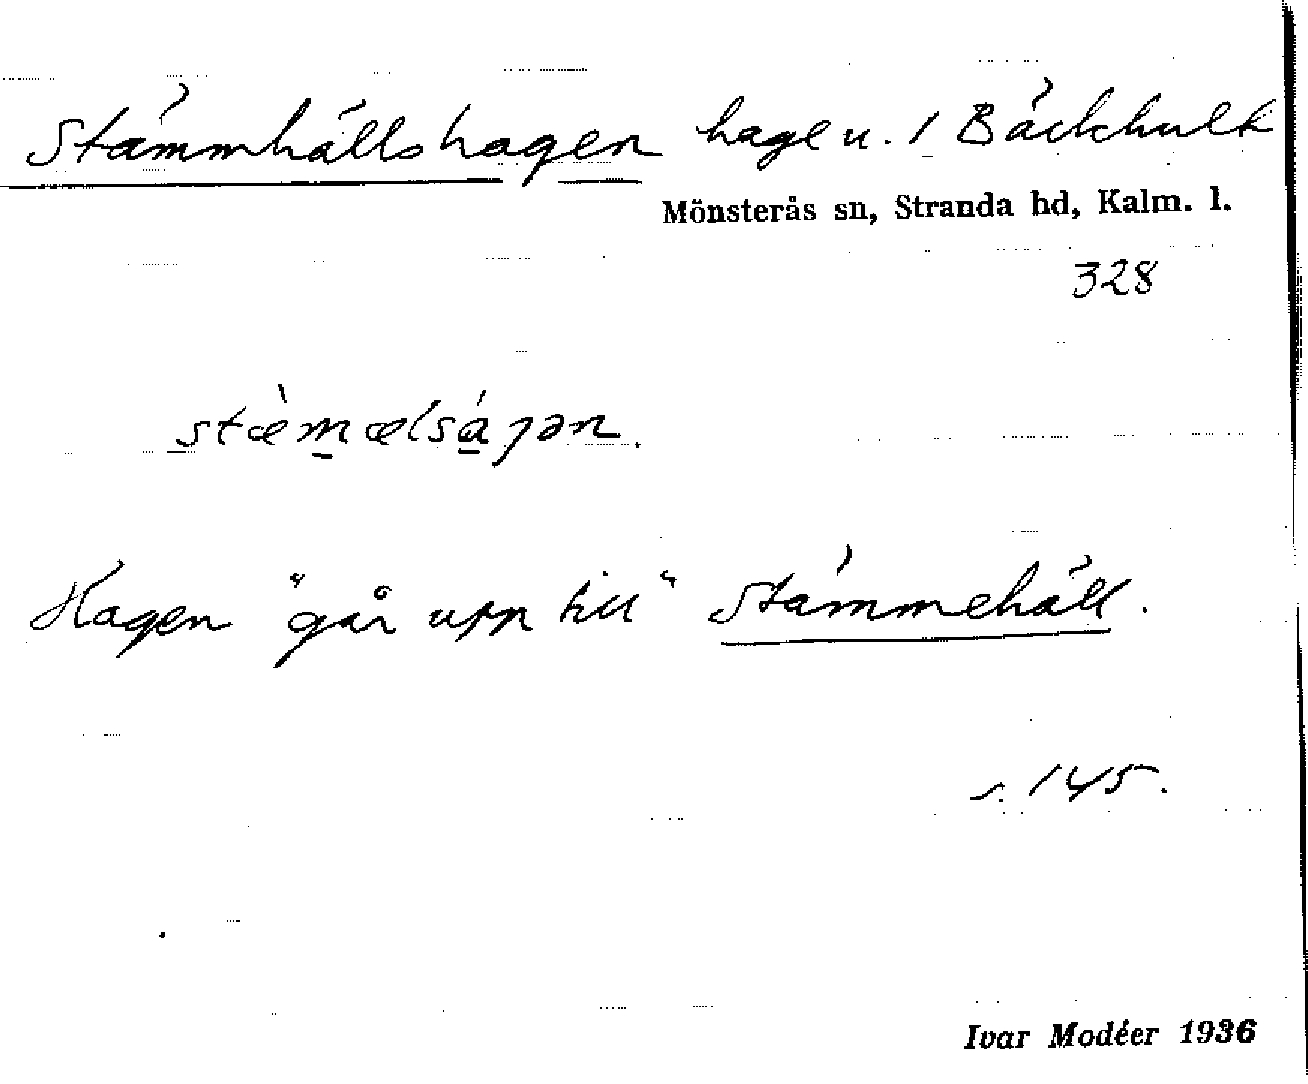 Stämmhällshagen hage u. 1 Bäckhult
Mönsterås sn, Stranda hd, Kalm. l.
328
stæ̀mælsáɡən.
Hagen "går upp till" Stämmehäll.
s. 145.
Ivar Modéer 1936